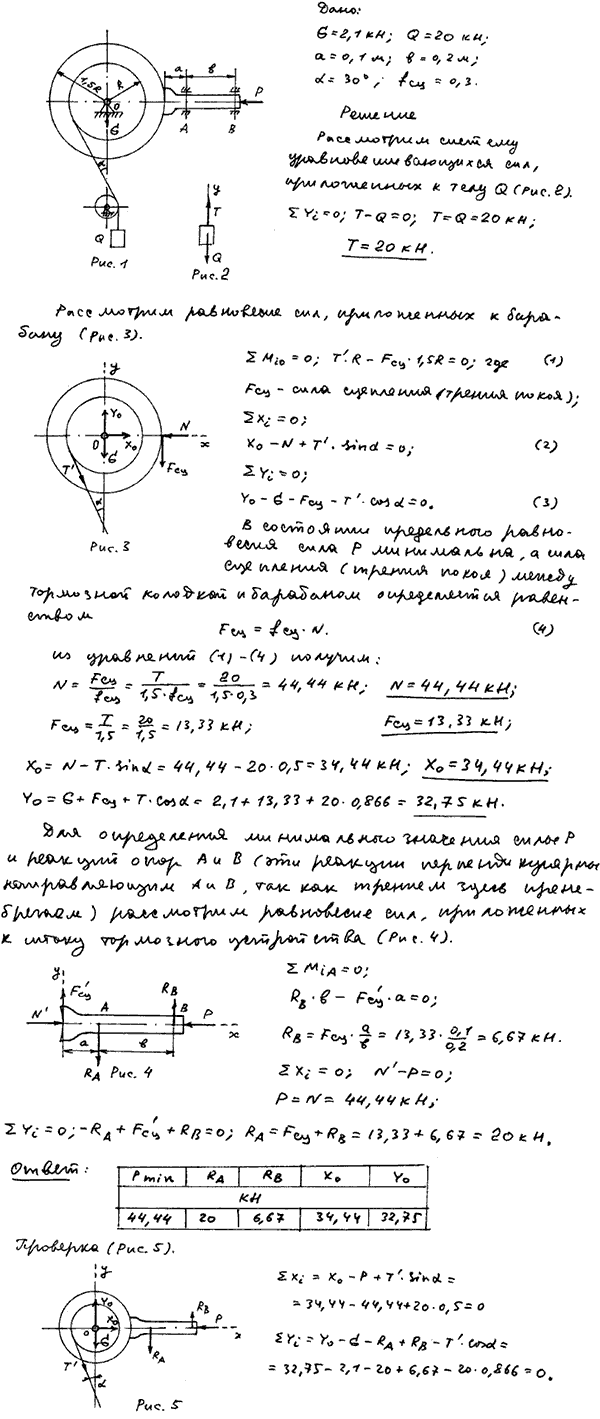 Дано:
G=2,1 кН; Q=20 кН;
a=0,1 м; в=0,2 м;
α=30°; fсц=0,3.
1,5R
R
O
G
α
a
в
P
A
B
Q
Рис. 1
y
T
Q
Рис. 2
Решение
Рассмотрим систему
уравновешивающихся сил,
приложенных к телу Q (Рис. 2).
ΣYi=0; T-Q=0; T=Q=20 кН;
T=20 кН.
Рассмотрим равновесие сил, приложенных к бара-
бану (Рис. 3).
y
Yo
O
Xo
N
x
G
T'
Fсц
α
Рис. 3
ΣMio=0; T'·R-Fсц·1,5R=0; где (1)
Fсц - сила сцепления (трения покоя);
ΣXi=0;
Xo-N+T'·sinα=0; (2)
ΣYi=0;
Yo-G-Fсц-T'·cosα=0. (3)
В состоянии предельного равно-
весия сила P минимальна, а сила
сцепления (трения покоя) между
тормозной колодкой и барабаном определяется равен-
ством
Fсц=fсц·N. (4)
из уравнений (1)-(4) получим:
N=Fсц/fсц=T/1,5·fсц=20/1,5·0,3=44,44 кН; N=44,44 кН;
Fсц=T/1,5=20/1,5=13,33 кН; Fсц=13,33 кН;
Xo=N-T·sinα=44,44-20·0,5=34,44 кН; Xo=34,44 кН;
Yo=G+Fсц+T·cosα=2,1+13,33+20·0,866=32,75 кН.
Для определения минимального значения силы P
и реакций опор A и B (эти реакции перпендикулярны
направляющим A и B, так как трением здесь прене-
брегаем) рассмотрим равновесие сил, приложенных
к штоку тормозного устройства (Рис. 4).
y
F'сц
RB
N'
A
B
P
x
a
в
RA
Рис. 4
ΣMiA=0;
RB·в-F'сц·a=0;
RB=Fсц·a/в=13,33·0,1/0,2=6,67 кН.
ΣXi=0; N'-P=0;
P=N=44,44 кН;
ΣYi=0; -RA+F'сц+RB=0; RA=Fсц+RB=13,33+6,67=20 кН.
Ответ:
Pmin RA RB Xo Yo
кН
44,44 20 6,67 34,44 32,75
Проверка (Рис. 5).
y
Yo
O
Xo
G
RB
P
x
RA
T'
α
Рис. 5
ΣXi=Xo-P+T'·sinα=
=34,44-44,44+20·0,5=0
ΣYi=Yo-G-RA+RB-T'·cosα=
=32,75-2,1-20+6,67-20·0,866=0.